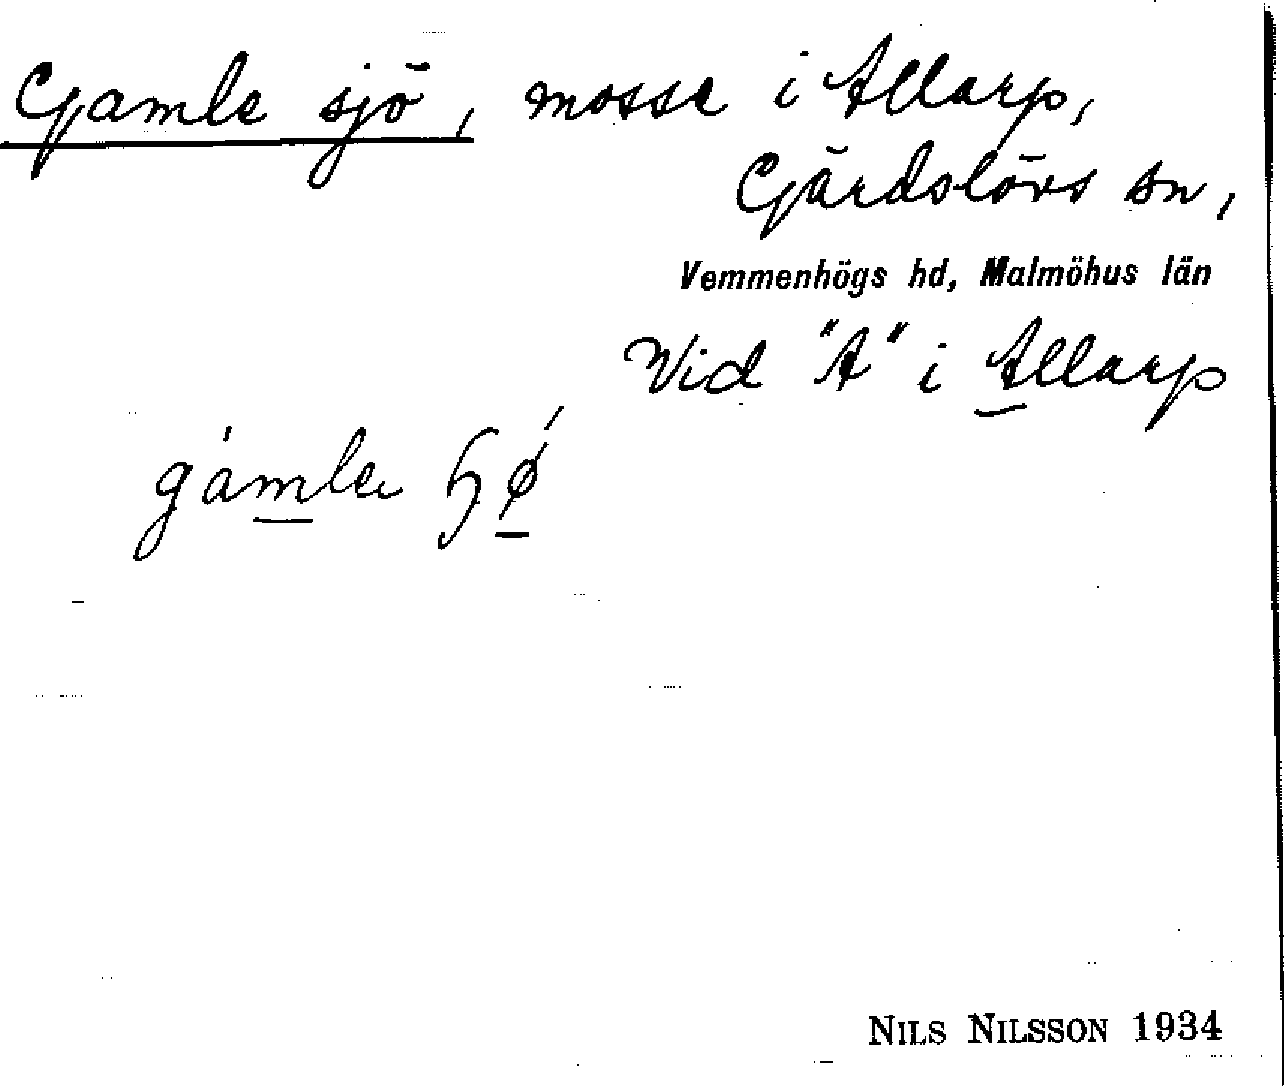 Gamle sjö, mosse i Allarp,
Gärdslövs sn,
Vemmenhögs hd, Malmöhus län
Vid "A" i Allarp
gamle
NILS NILSSON 1934